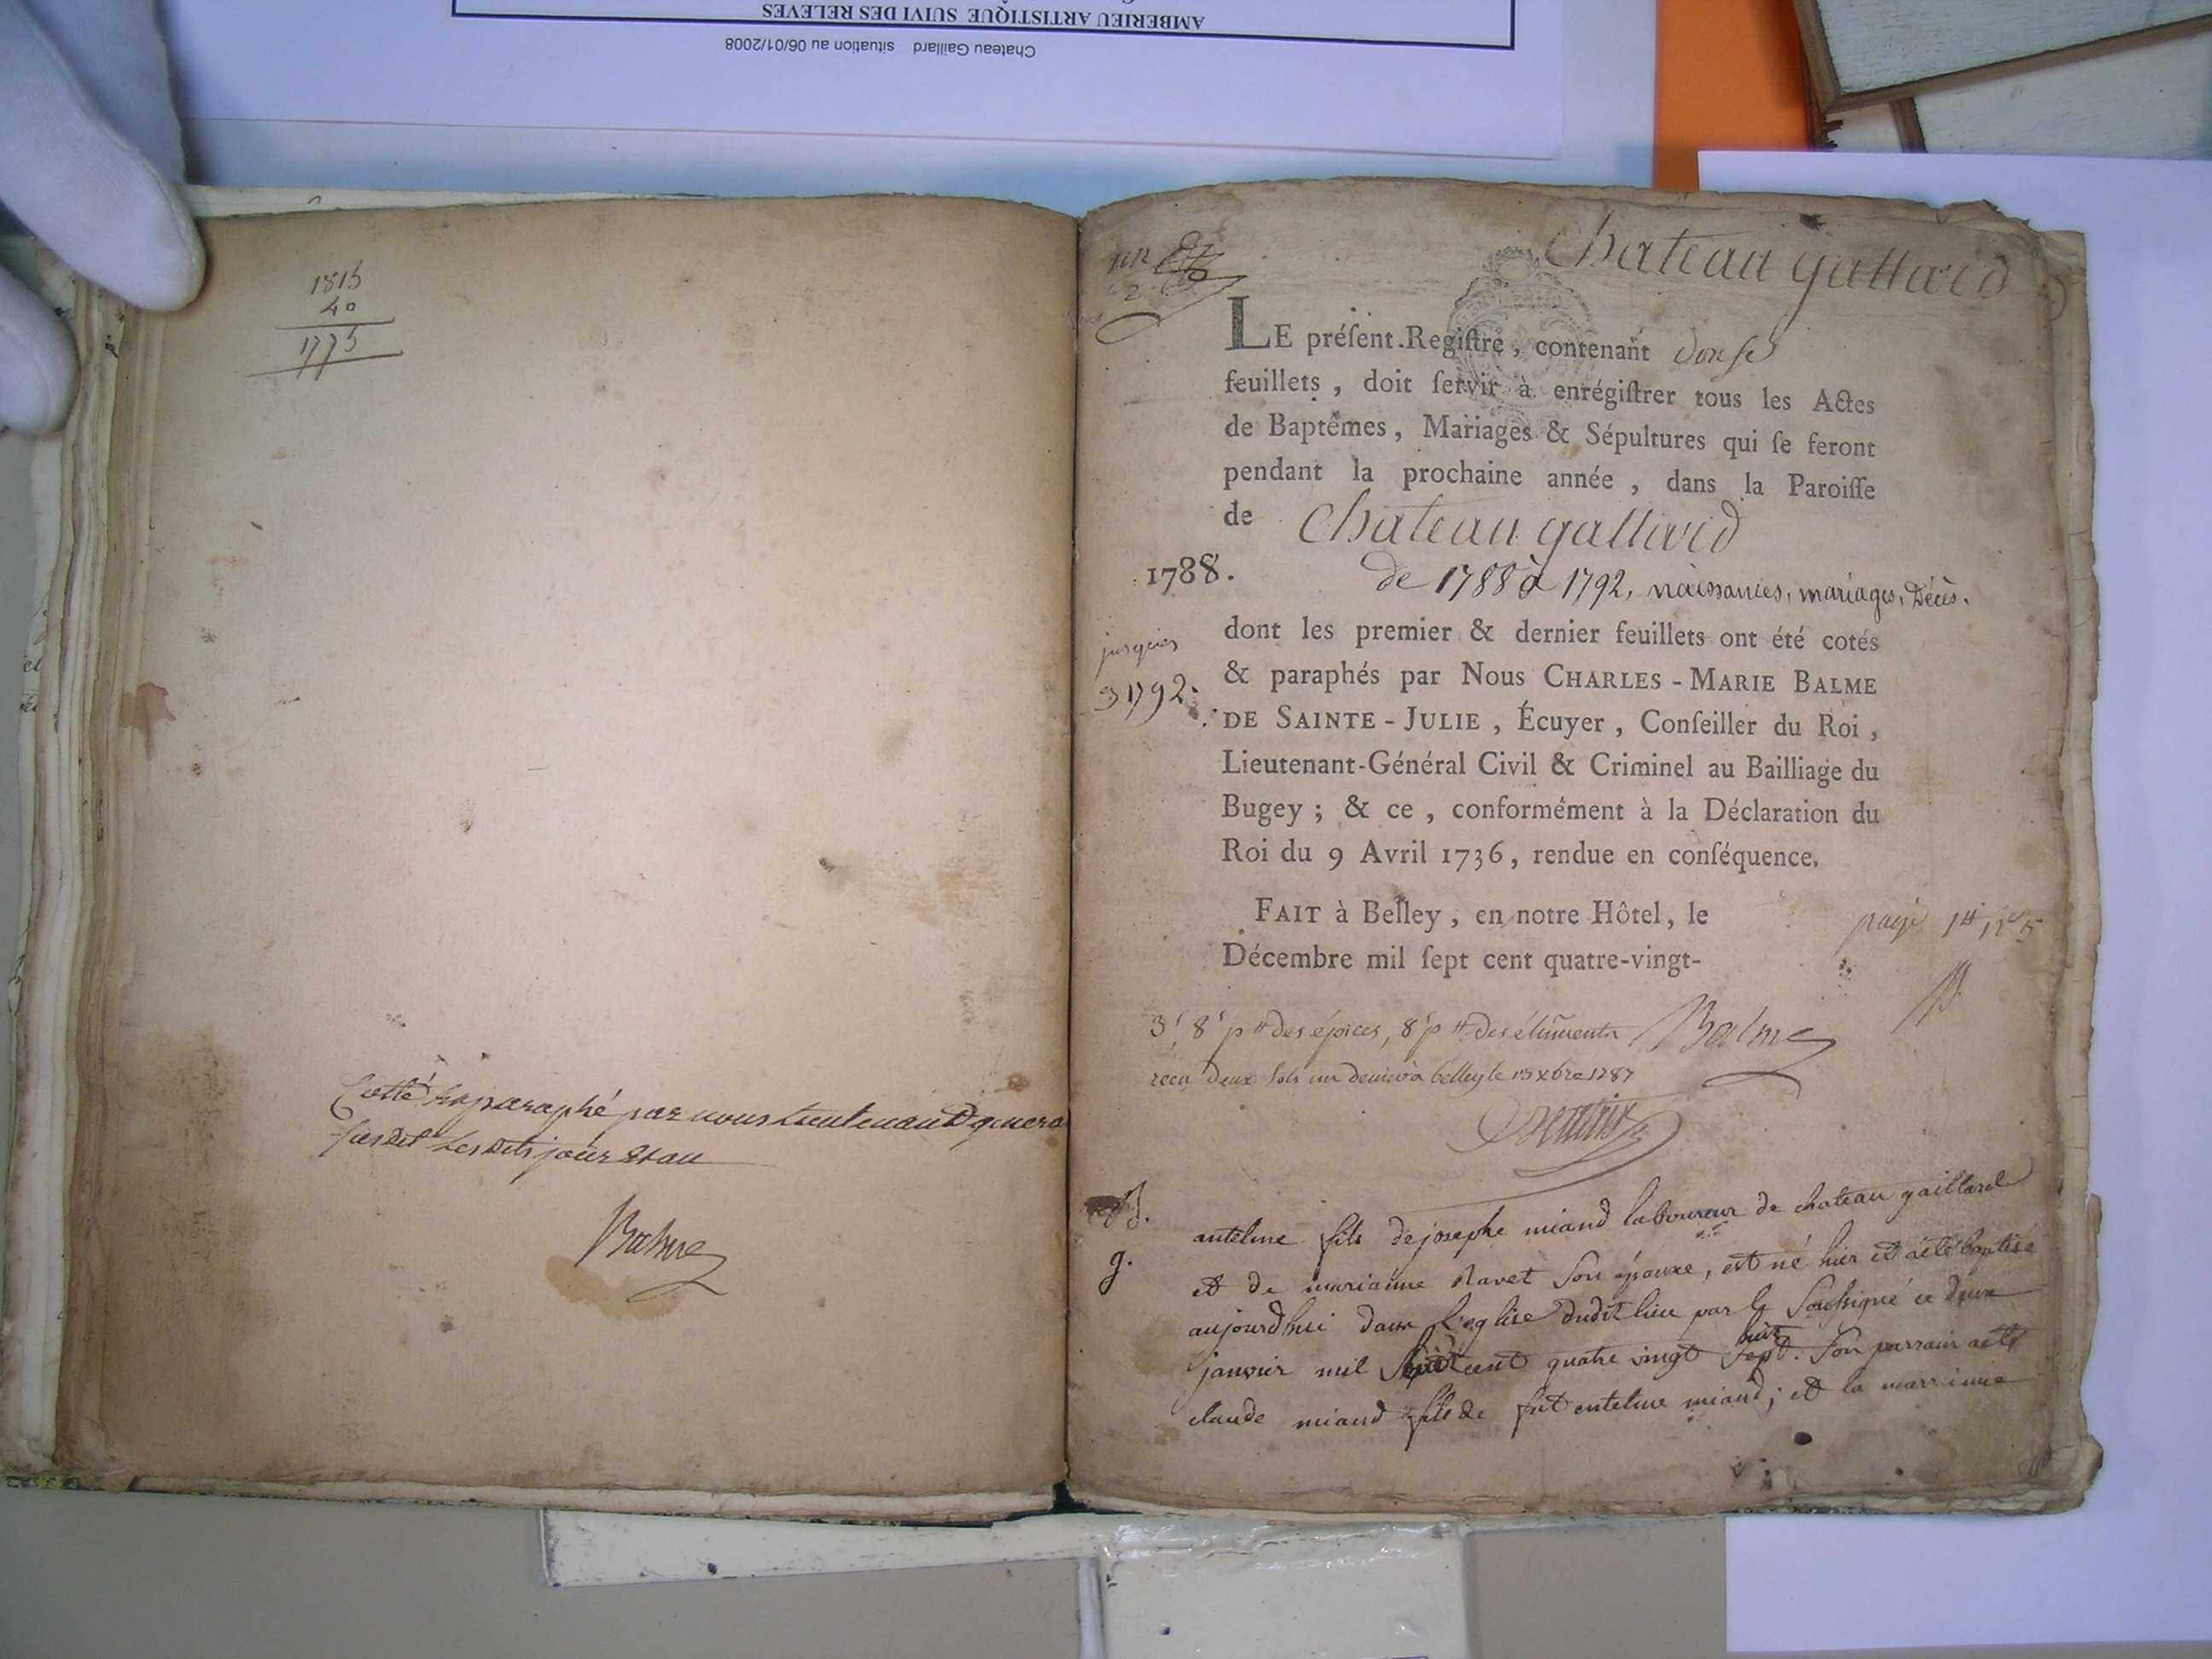 AMBERIEU ARTISTIQUE SUIVI DES RELEVES
Chateau Gaillard situation au 06/01/2008
1815
40
1775
Cotté paraphé par nous Lieutenant general
susdit les dits jour & an
Balme
Chateau gallard
LE préſent Regiſtre, contenant douſe
feuillets, doit ſervir à enrégiſtrer tous les Actes
de Baptêmes, Mariages & Sépultures qui ſe feront
pendant la prochaine année, dans la Paroiſſe
de Chateau gallard
1788. de 1788 à 1792, naissances, mariages, Décès.
jusques
1792.
dont les premier & dernier feuillets ont été cotés
& paraphés par Nous CHARLES-MARIE BALME
DE SAINTE-JULIE, Écuyer, Conſeiller du Roi,
Lieutenant-Général Civil & Criminel au Bailliage du
Bugey; & ce, conformément à la Déclaration du
Roi du 9 Avril 1736, rendue en conſéquence.
FAIT à Belley, en notre Hôtel, le
Décembre mil ſept cent quatre-vingt-
des épices, Balme
recu deux sols un denier à belley le 1787
antelme fils de josephe miand laboureur de chateau gaillard
et de marianne ravet son épouxe, est né hier et a été baptisé
aujourdhui dans l'eglise dudit lieu par le soussigné ce deux
janvier mil sept cent quatre vingt huit sept. son parrain a été
claude miand fils de fut entelme miand; et la marrinne